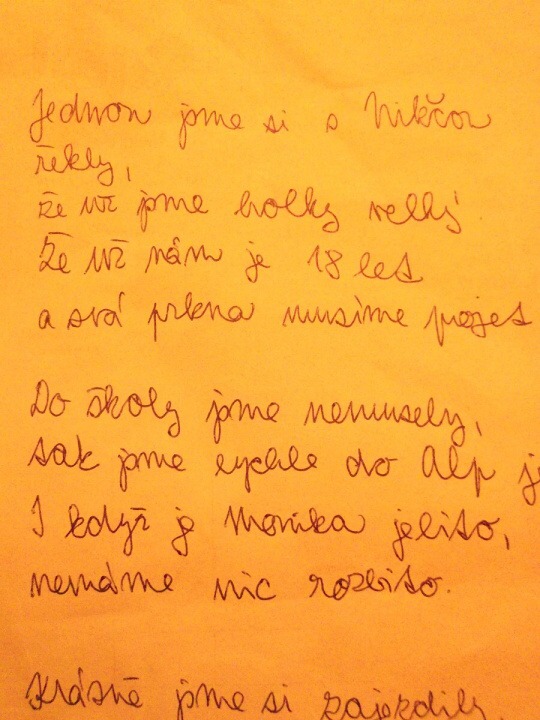 Jednou jsme si s Nikčou
řekly,
že už jsme holky velký.
Že už nám je 18 let
a svá prkna musíme projet
Do školy jsme nemusely,
tak jsme rychle do Alp
I když je Monika jelito,
nemáme nic rozbito.
Krásně jsme si zajezdily